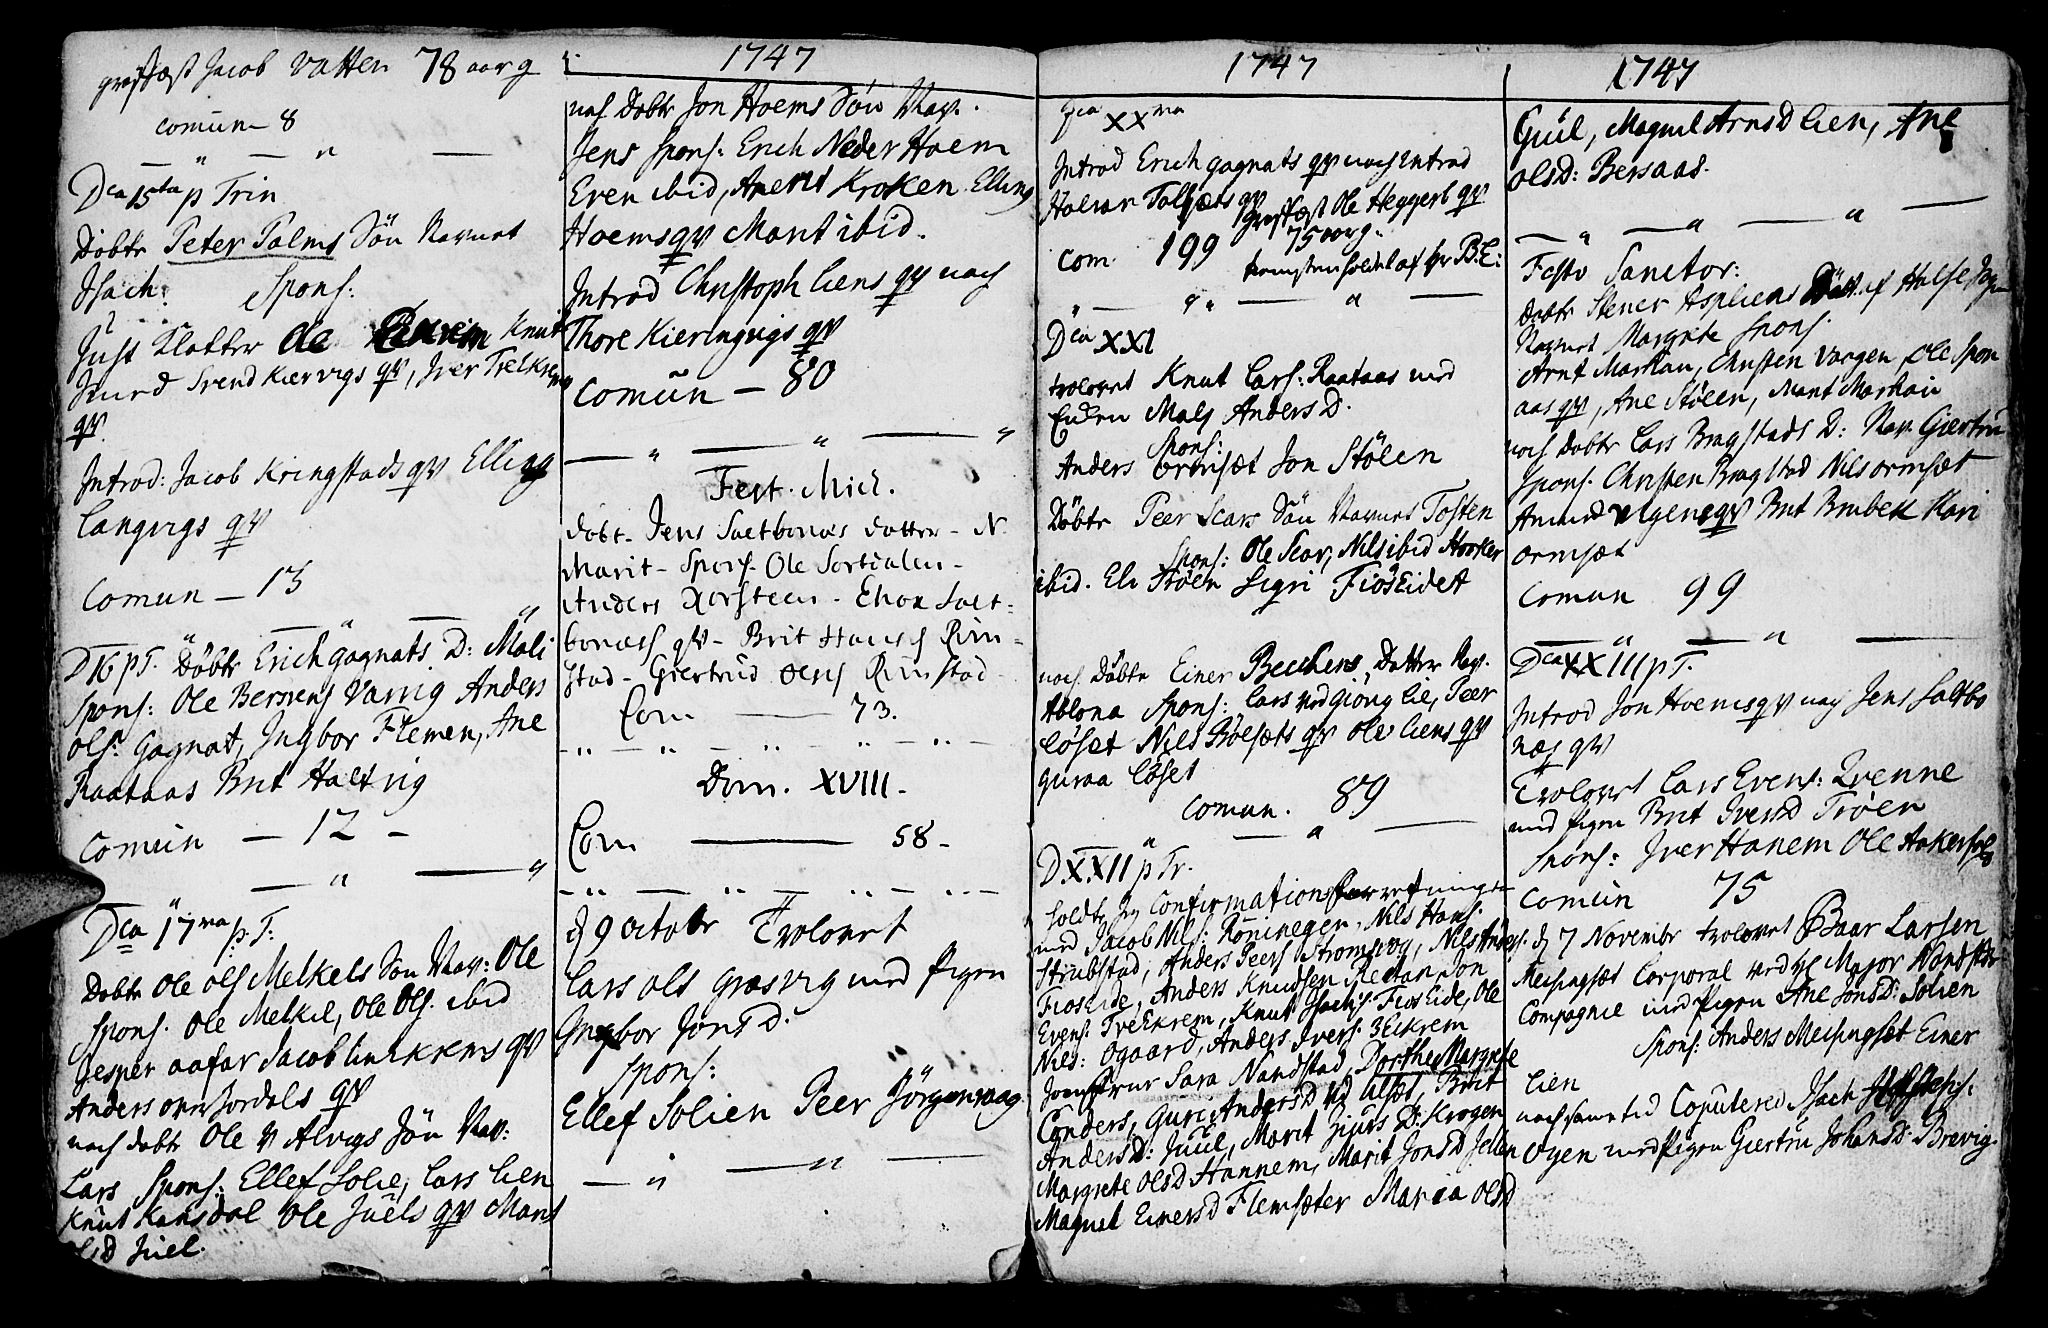 graffæst Jacob Vatten 78 aar g
comun – 8
Dca 15ta p Trin
Döbte Peter Palms Sön Navnet
Isach. Spons:
Just Klotter Ole Knut
Svend Kiervigs qv, Iver Trelkrem
qv.
Introd: Jacob Kringstads qv Elling
Langvigs qv
Comun – 13
D 16 p T. Döbte Erich Gagnats D: Mali
Spons: Ole Bersvens Varvig Anders
Ols: Gagnat, Ingbor Flemen, Ane
Raataas Brit Haltvig
Comun – 12 –
Dca 17ma p. T:
Döbte Ole Ols Melkels Sön Nav: Ole
Spons. Ole Melkel, Ole Ols. ibid
Jesper aafar Jacob qv
Anders qv
noch döbte Ole Alvigs Sön Nav:
Lars Spons: Ellef Solie, Lars Lien
Knut Kansdal Ole Juels qv Marit
Olsd Juel.
1747
noch Döbte Jon Hoems Sön Nav.
Jens Spons: Erich Neder Hoem
Even ibid, Anerit Kroken Elling
Hoems qv Marit ibid.
Introd Christoph Liens qv noch
Thore Kieringvigs qv
Comun – 80
Fest. Mich.
Döbt. Jens Saltbonæs Datter – N.
Marit – Spons. Ole Sortdalen –
Anders Korsteen – Ellen Salt-
bonæs qv – Brit Hans Rim-
stad – Giertrud Ols Rimstad –
Com. — 73.
Dom. XVIII.
Com — 58 –
d 9 octobr Trolovet
Lars Ols Grasvig med Pigen
Ingebor Jons D.
Spons:
Ellef Solien Peer Jörgenvaag
1747
Dca XXma
Introd Erich Gagnats qv noch Introd
Halvor Talsæts qv
Graffæst Ole Heggert qv
75 aar g.
Com. 199 af hr B.C:
Dca XXI
trolovet Knut Lars: Raataas med
Enken Mals Anders D.
Spons:
Anders Ormsæt Jon Stölen
Döbte Peer Scars Sön Navnet Tosten
Spons: Ole Scar, Nils ibid
ibid. Eli Stöen Sigri Fiöseidet
noch Döbte Einer Bechens Datter Nav.
Ablona Spons: Lars Vedgiong lie, Peer
Löset Nils Böesæts qv Ole Liens qv
Guraa Löset
Comun. 89
D XXII p Tr.
holdt jeg Confirmations forretningen
med Jacob Nils: Röninegen, Nils Hans:
Strubstad, Anders Peers Strömsvog, Nils Anders:
Fioseide, Anders Knudsen Jon
Evens: TreEkrem, Knut Isachs: Fios Eide, Ole
Nils: Ogaard, Anders Ivers: Eckrem
Jomfrur Sara Nandstad, Dorthe Margrete
Conders, Guri Anders D Brit
Anders D: Juul, Marit Siurs D: Krogen
Margrete Ols D Hannem, Marit Jons D
Magnil Einers D Flemsæter Maria Ols D
1747
Giul, Magnil Arns D Lien, Ane
Ols D: Bersaas.
Festo Sanctor:
Döbte Stener Aspliens Datt. af
Navnet Margrete Spons.
Arnt Markau, Christen Vargen, Ole
aas qv, Ane Stölen, Marit Markau
noch döbte Lars Bragstads D: Nav. Giertru
Spons. Christen Bragstad Nils Ormsæt
qv Brit Brubek Kari
Ormsæt
Comun 99
Dca XXIII p T.
Introd Jon Hoems qv noch Jens Saltbo
næs qv
Trolovet Lars Evens: Qvenne
med Pigen Brit Ivers D Tröen
Spons: Iver Hanem Ole
Comun 75
d 7 Novembr trolovet Baar Larsen
Meisingsæt Corporal ved Major Nandstad
Compagnie med Pigen Ane Jons D: Solien
Spons: Anders Meisingset Einer
Lien
noch samme tid Coputered Isach
Oyen med Pigen Giertru Johans D: Brevig.